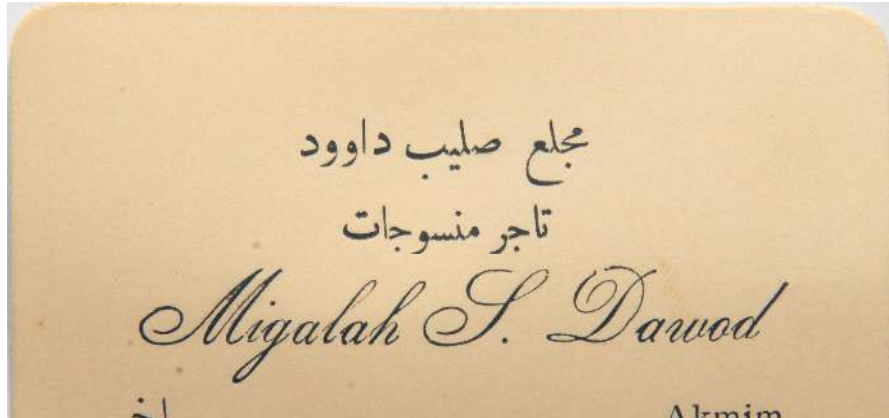 مجلع صليب داوود
تاجر منسوجات
Migalah S. Dawod
Akmim